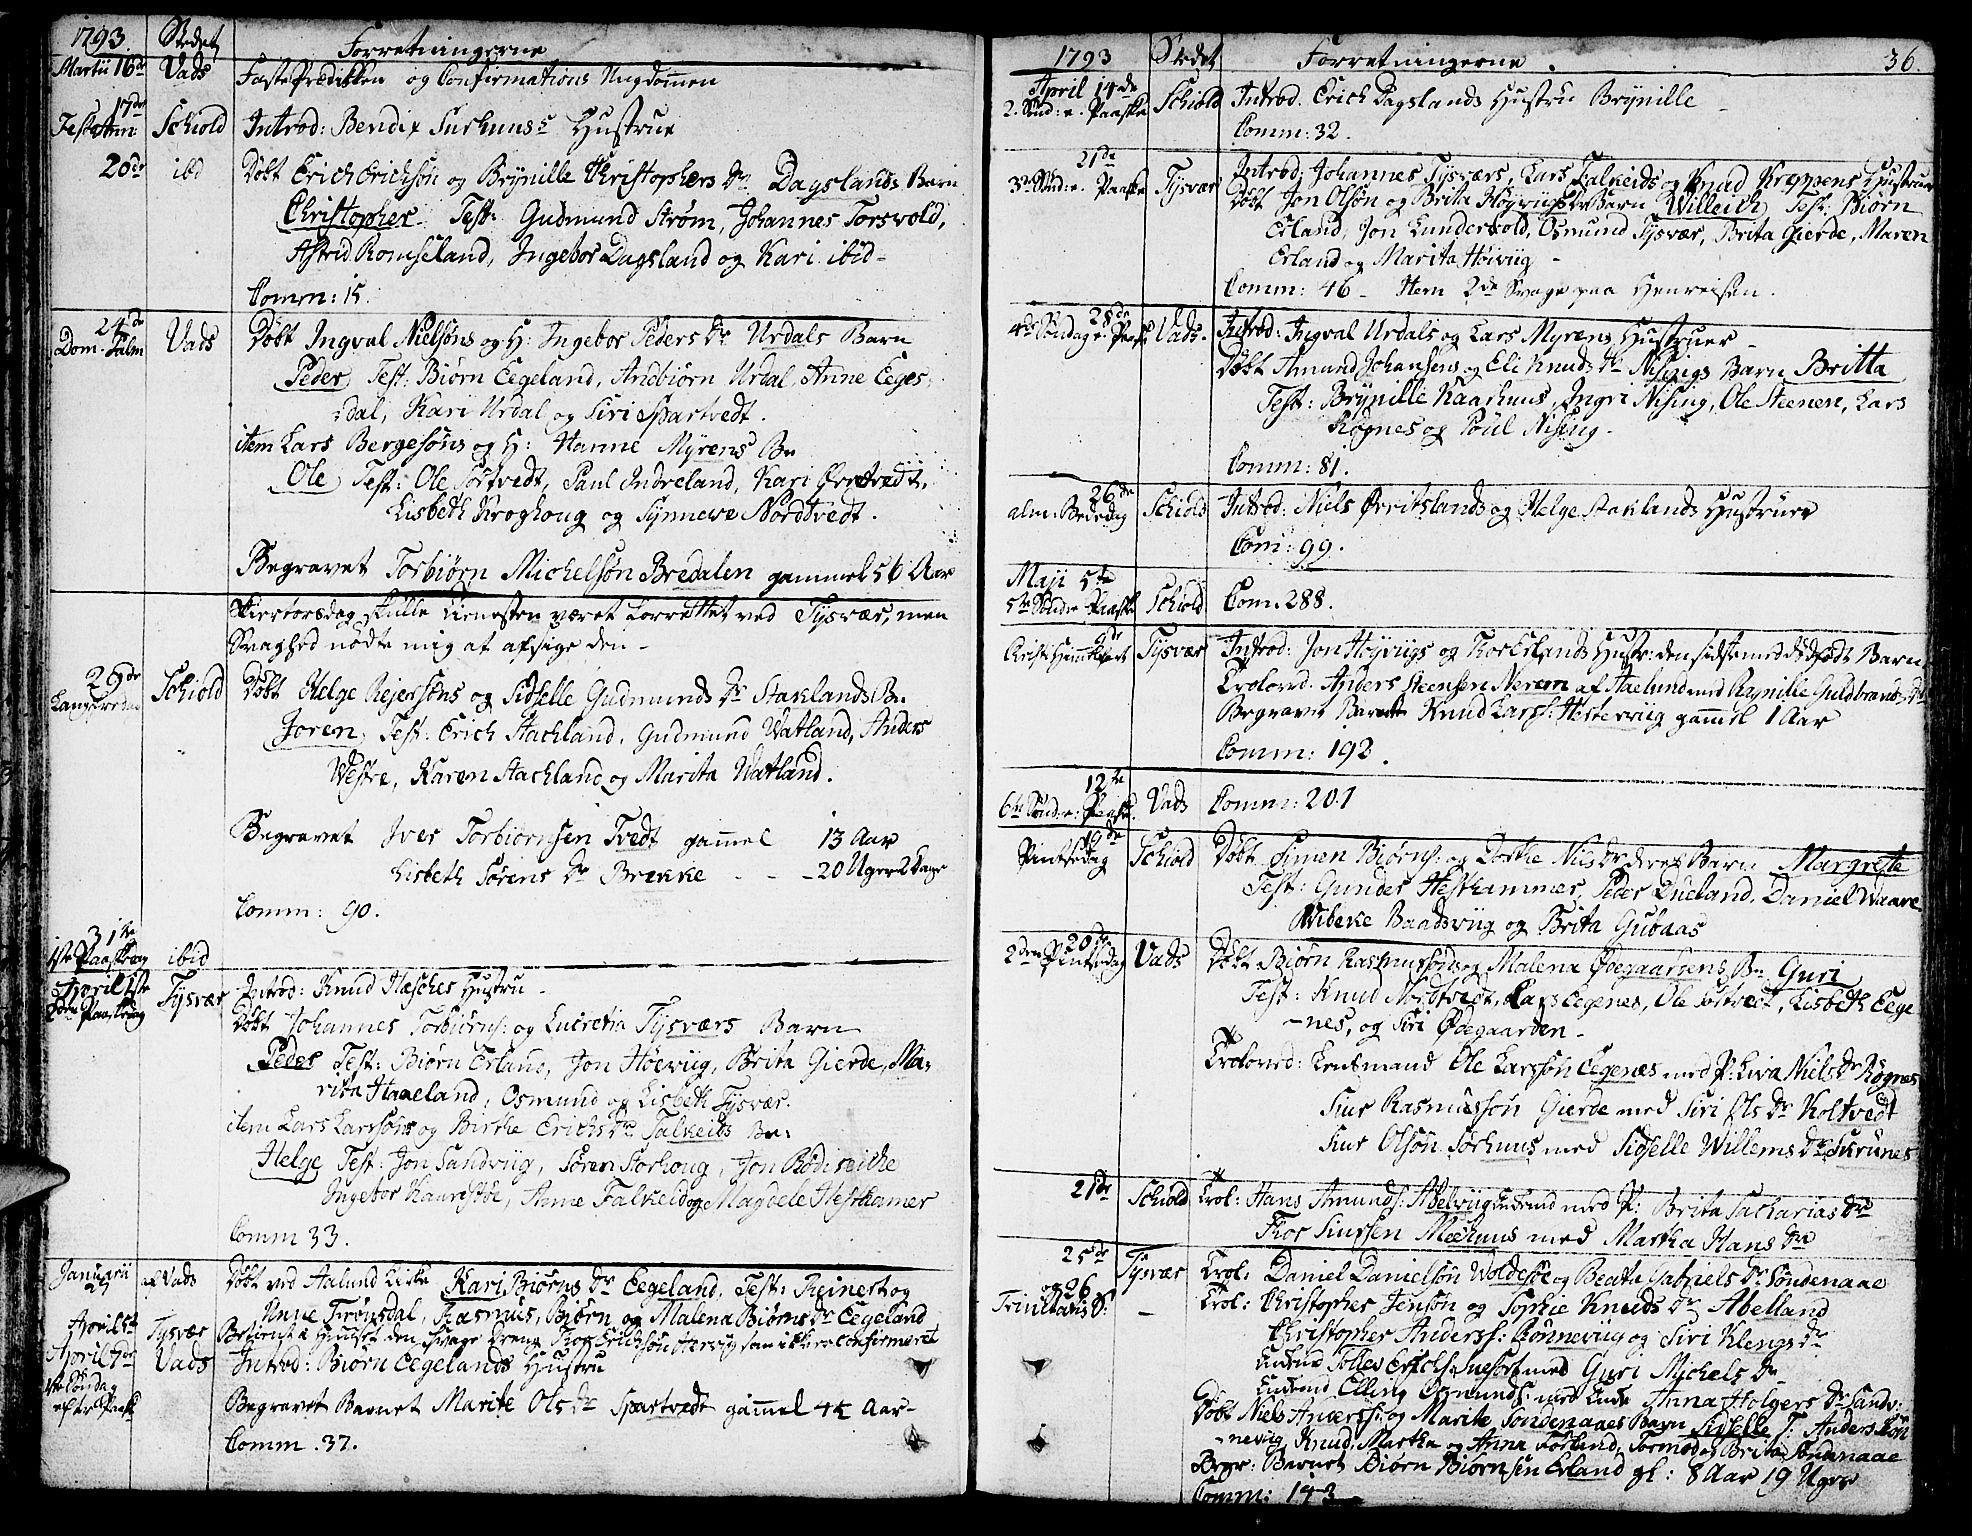 1793. Stedet Forretningerne
Martii 16de Vads FastePrædikken og Confirmations Ungdommen
17de
Schiold Introd: Bendix Surhuus's Hustrue
20de ibd Døbt Erich Erichsøn og Brynille Christophers Dr Dagslands Barn
Christopher Test: Gudmund Strøm, Johannes Torsvold,
Astrid Romseland, Ingebor Dagsland og Kari ibid-
Comm: 15.
24de
Dom. Palm Vads Døbt Ingval Nielsøns og H: Ingebor Peders Dr Urdals Barn
Peder Test: Biørn Eegeland, Andbiørn Urdal, Anne Eeges-
dal, Kari Urdal og Siri Spartvedt.
item Lars Bergesøns og H: Hanne Myrens Bn
Ole Test: Ole Sørtvedt, Paul Indreland, Kari Øvretvedt,
Lisbeth Kroghoug og Synneve Nordtvedt.
Begravet Torbiørn Michelsøn Bredalen gammel 56 Aar
Skiertorsdag skulle tienesten været forrettet ved Tysvær, men
Svaghed nødte mig at afsige den-
29de
Langfredag Schiold Døbt Helge Rejersøns og Sidselle Gudmunds Dr Staklands Bn
Joren, Test: Erich Stachland, Gudmund Vatland, Anders
Vestre, Karen Stachland og Marita Watland.
Begravet Iver Torbiørnsen Tvedt gammel 13 Aar
Lisbeth Sørens Dr Brekke - - - 20 Uger 2 Dage
Comm: 90.
31te
1ste Paaskedag ibid
April 1ste
2den Paaskedag Tysvær Introd: Knud Hesches Hustru-
Døbt Johannes Torbiørns: og Lucretia Tysværs Barn
Peder Test: Biørn Erland, Jon Høeviig, Brita Gierde, Ma-
rita Haaeland, Osmund og Lisbeth Tysvær.
item Lars Larssøns og Birthe Erichs Dr Falkeids Bn:
Helge Test: Jon Sandviig, Søren Storhoug, Jon
Ingebor Kaarstøe, Anne Falkeid og Magdele Hesthamer
Comm 33.
Januarii
27 af Vads Døbt ved Aalund Kirke Kari Biørns Dr Eegeland, Test: Reinert og
Anne Trønsdal, Rasmus, Biørn og Malena Biørns Dr Eegeland
April Tysvær Betient i Huuset den svage Dreng Thor Erichsøn som ikke confirmeret
April 7de Vads Introd: Biørn Eegelands Hustru
1ste Søndag
efter Paaske Begravet Barnet Marite Ols Dr Spartvedt gammel 4½ Aar-
Comm. 37.
1793 Stedet Forretningerne. 36.
April 14de
2. Sønd: e. Paaske Schiold Introd. Erich Dagslands Hustru Brynille -
Comm: 32.
21de
3. Sønd: e. Paaske Tysvær Introd: Johannes Tysværs, Lars Falkeids og Knud Hustruer
Døbt Jon Olsøn og Brita Barn Willeich Test: Biørn
Erland, Jon Lundervold, Osmund Tysvær, Brita Gierde, Maren
Erland og Marita Høiviig -
Comm: 46- Item 2de Svage paa Henreisen.
28de
4de Søndag e. Paaske Vads. Introd: Ingval Urdals og Lars Myrens Hustruer -
Døbt Amund Johansens og Eli Knuds Dr Nisings Barn Britta
Test: Brynille Kaarhuus, Ingri Nising, Ole Steenen, Lars
Røgnes og Poul Nising.
Comm: 81.
26de
alm: Bededag Schiold Introd: Niels Øvritslands og Helge Staklands Hustruer
Com: 99.
Maji 5te
5te Sønd e Paaske Schiold Com. 288.
9de
Christi Himmelfart Tysvær Introd: Jon Høyviigs og Tor Erlands Hustr: den sidste med dødfødt Barn.
Trolovd. Anders Steensen Nerem af Aaelund med Rynille Guldbrands Dr
Begravet Barnet Knud Larss: Hesterviig gammel 1 Aar
Comm: 192.
12te
6te Sønd: e: Paaske. Vads Comm: 201
19de
Pintsedag Schiold Døbt Simen Biørns: og Dorthe Nils Dr deres Barn Margrete
Test: Gunder Hesthammer, Peder Dueland, Daniel Waare
Wibeke Baadsviig og Brita Gubaas
20de
2den Pintsedag Vads Døbt Biørn Rasmussøns og Malena Ødegaardens Bn Guri
Test: Knud Nordtvedt, Lars Eegenes, Ole Sørtvedt, Lisbeth Eege
-nes, og Siri Ødegaarden-
Trolovd: Leutmand Ole Larssøn Eegenæs med P: Liva Niels Dr Røgnes
Siur Rasmussøn Gierde med Siri Ols Dr Koltvedt
Siur Olsøn Sørhuus med Sidselle Willems Dr Skrunes
21de Schiold Trol: Hans Amunds: Abelviig med P: Brita Sacharias Dr
Thor Siursen Mæhuus med Martha Hans Dr
25de
og 26 Tysvær Trol: Daniel Danielsøn Woldesøe og Beata Gabriels Dr Søndenaae
Trinitatis S: - Trol: Christopher Jensøn og Sophie Knuds Dr Abelland
Christopher Anderss: Bønneviig og Siri Klengs Dr
Tollev Erichs: med Guri Michels Dr
Elling Osmunds: med Anna Holgers Dr Sandv:
Døbt Niels Anderss: og Marite Søndenaaes Barn Sidselle T: Anders Bøn
-neviig, Knud, Martha og Anna Førland, Tormod og Brita Søndenaae
Begr: Barnet Biørn Biørnsen Erland gl: 8 Aar 19 Uger
Comm: 143